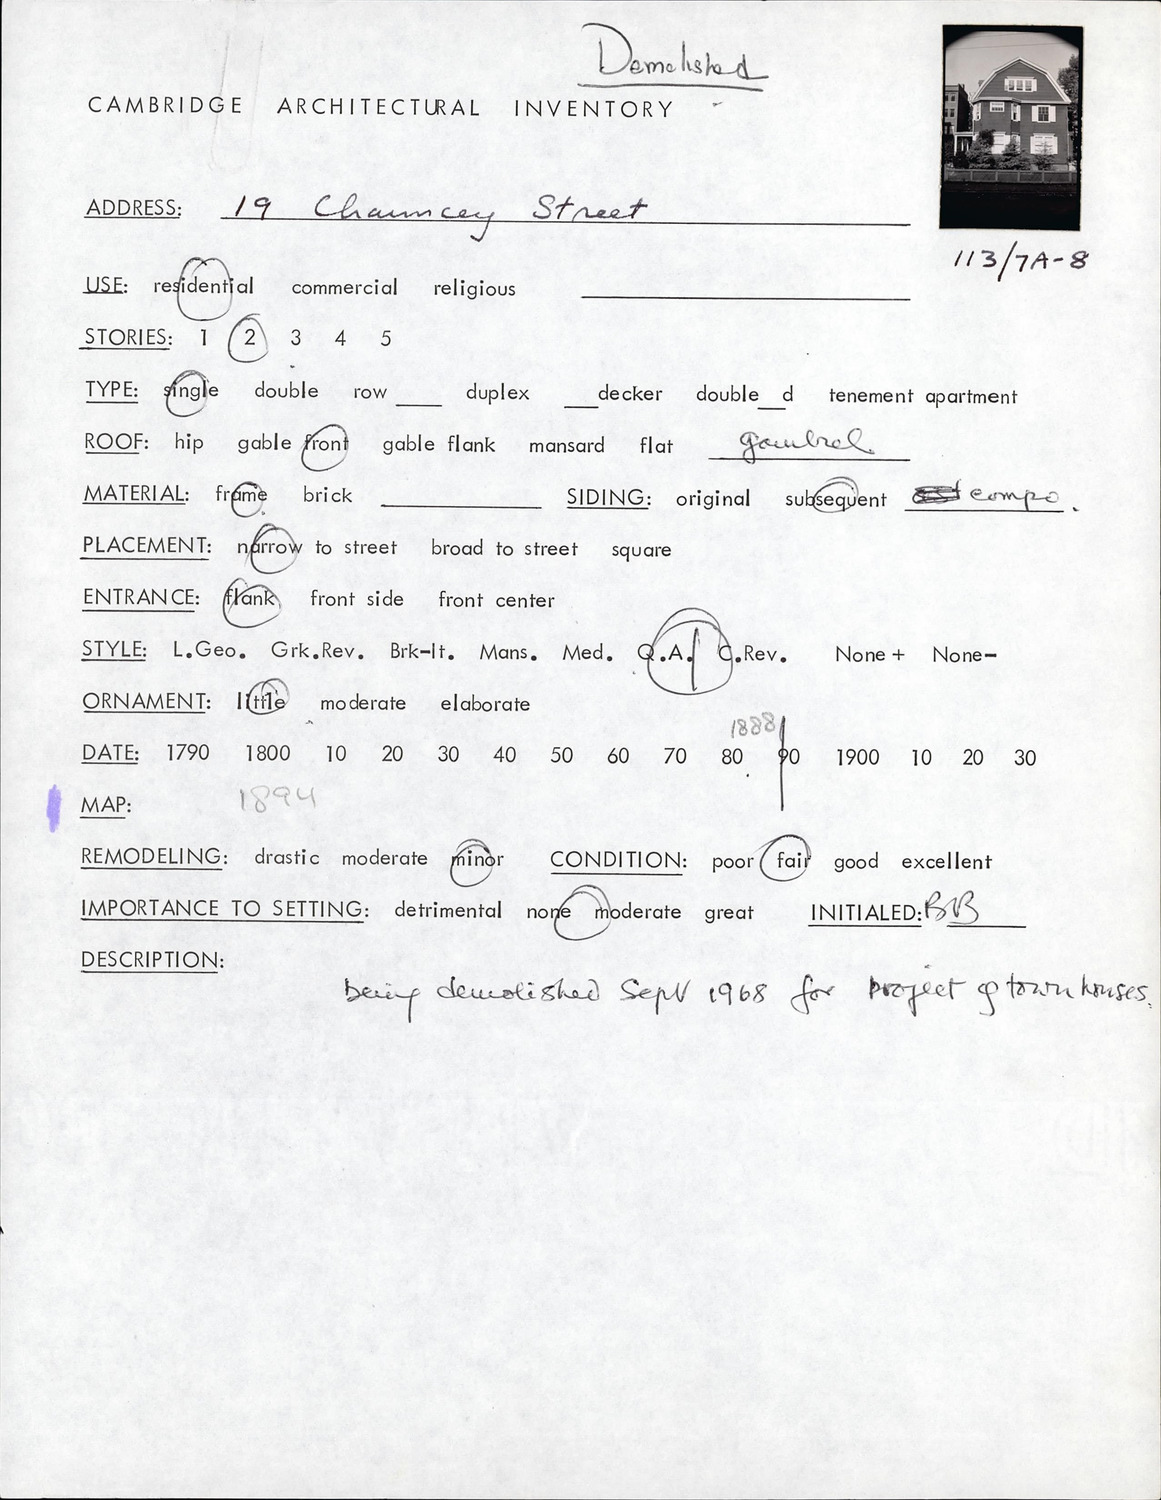 Demolished
CAMBRIDGE ARCHITECTURAL INVENTORY
ADDRESS: 19 Chauncey Street
113/7A-8
USE: residential commercial religious
STORIES: 1 2 3 4 5
TYPE: single double row ___ duplex ___decker double__d tenement apartment
ROOF: hip gable front gable flank mansard flat gambrel
MATERIAL: frame brick SIDING: original subsequent compo.
PLACEMENT: narrow to street broad to street square
ENTRANCE: flank front side front center
STYLE: L.Geo. Grk.Rev. Brk-It. Mans. Med. Q.A. C.Rev. None+ None-
ORNAMENT: little moderate elaborate
1888
DATE: 1790 1800 10 20 30 40 50 60 70 80 90 1900 10 20 30
MAP: 1894
REMODELING: drastic moderate minor CONDITION: poor fair good excellent
IMPORTANCE TO SETTING: detrimental none moderate great INITIALED: BB
DESCRIPTION:
being demolished Sept 1968 for project of town houses.